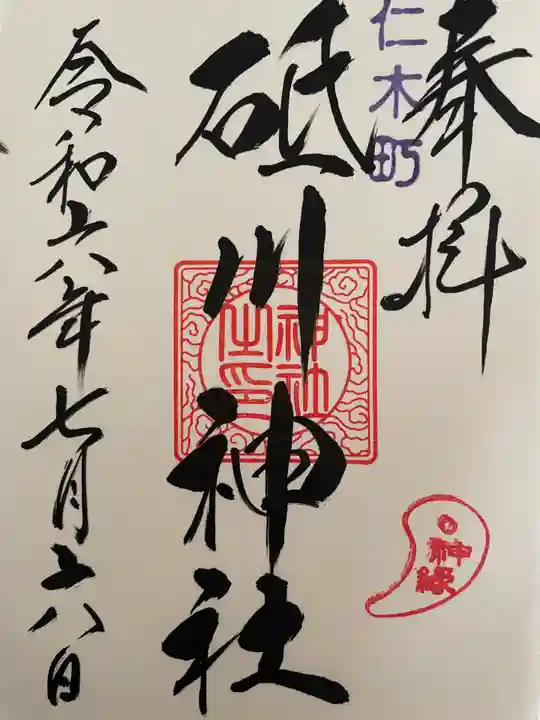 奉拝
仁木町
砥川神社
神社之印
神縁
令和六年七月十八日